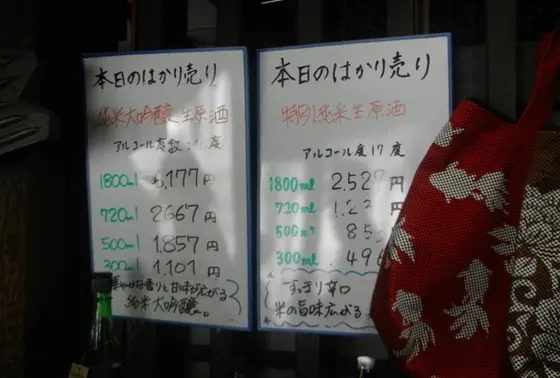 本日のはかり売り
純米大吟醸生原酒
アルコール度数: 度
1800ml 6,177円
720ml 2667円
500ml 1,857円
300ml 1,101円
華やかな香りと甘味が広がる
純米大吟醸。
本日のはかり売り
特別純米生原酒
アルコール度17度
1800ml 2,527円
720ml 円
500ml
300ml
すっきり辛口
米の旨味広がる